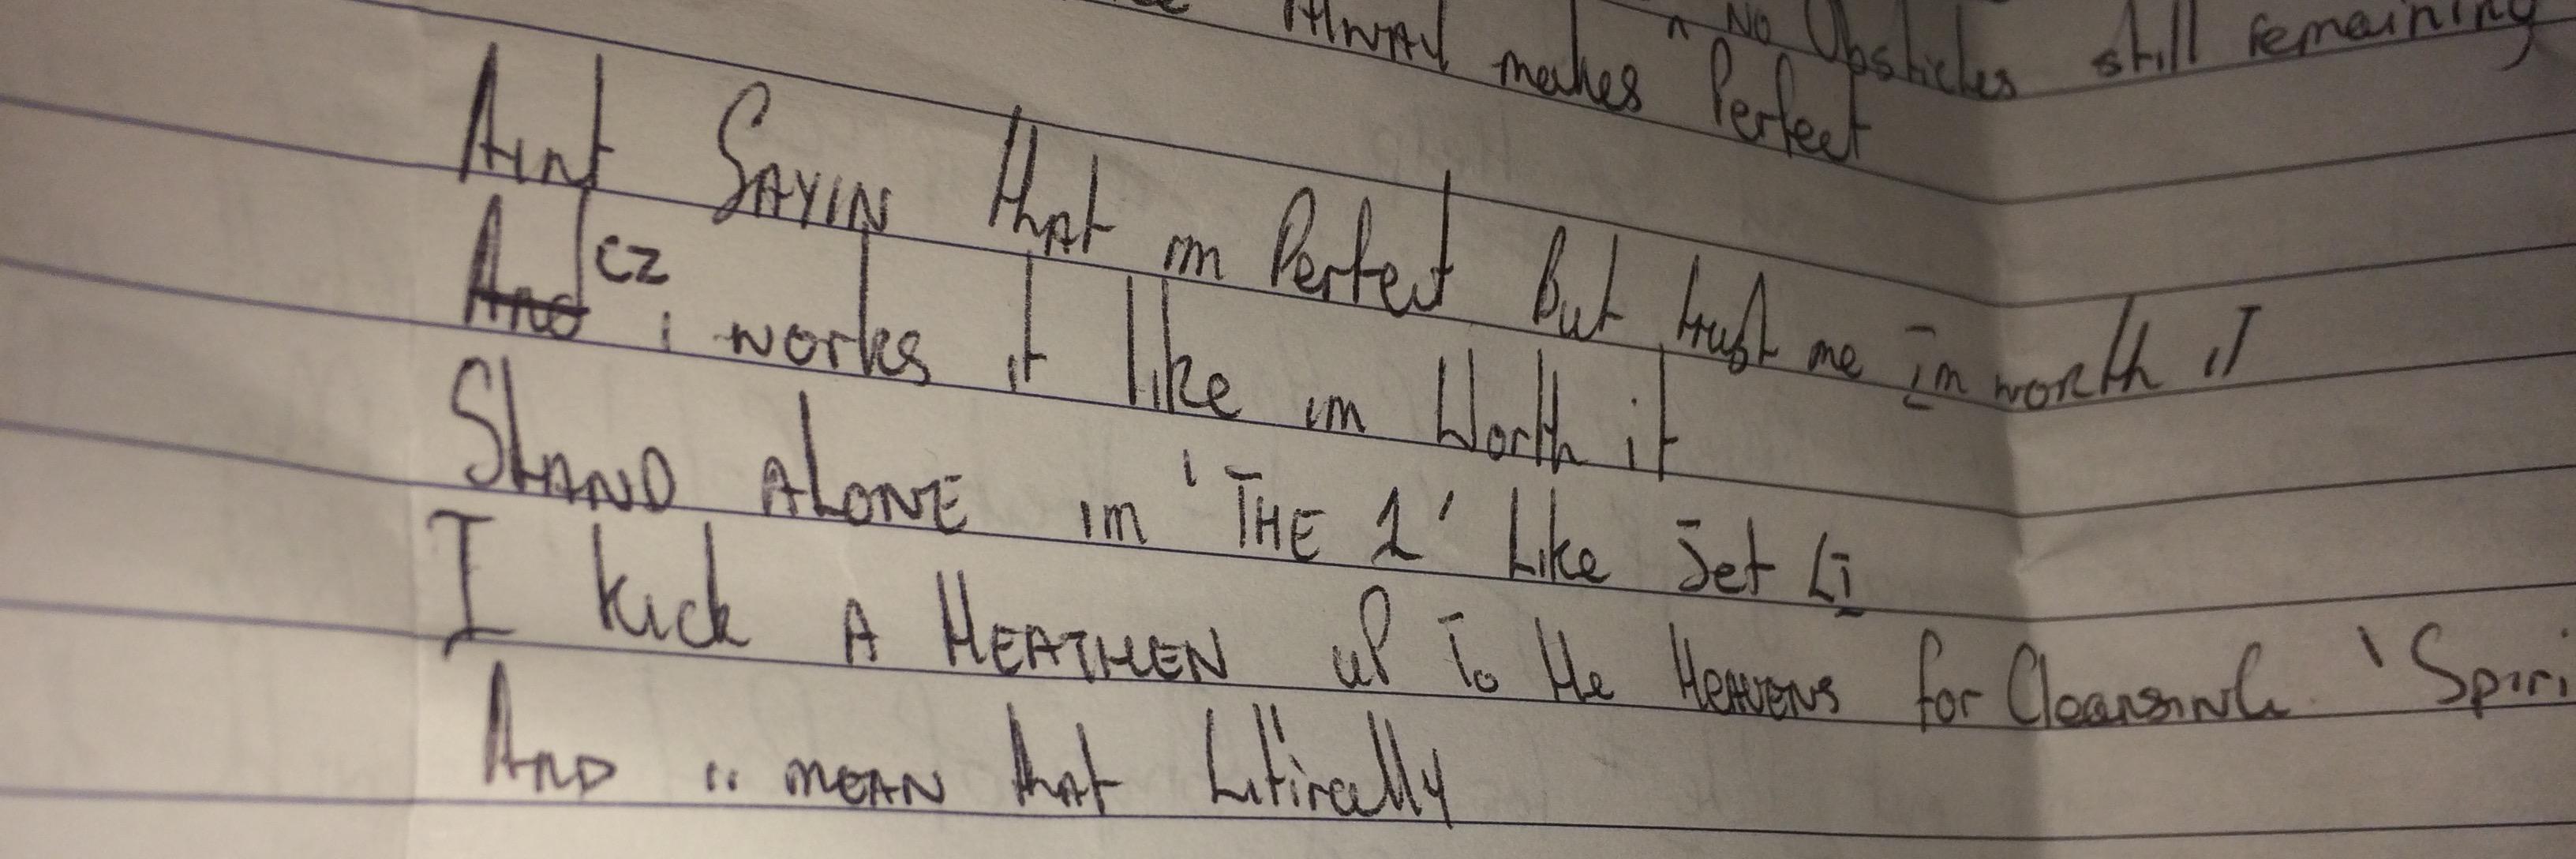 ^ No Obsticles still remaining
Alway makes Perfect
Aint SAYIN that im Perfect But trust me Im worth it
And cz i works it like im Worth it
STAND ALONE im 'THE 1' Like Jet Li
I kick A HEATHEN uP To the HEAVENS for CleansinG 'Spiri
AND i mEAN that Litirally